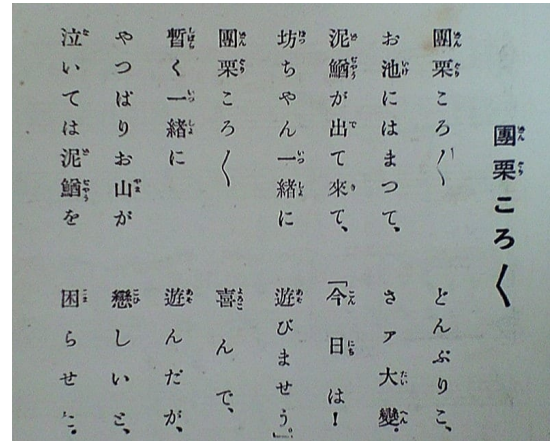 團栗ころ〳〵
團栗ころ〳〵　どんぶりこ、
お池にはまつて、　さァ大變。
泥鰌が出て來て、　「今日は!
坊ちやん一緒に　遊びませう。」
團栗ころ〳〵　喜んで、
暫く一緒に　遊んだが、
やつぱりお山が　戀しいと、
泣いては泥鰌を　困らせた。